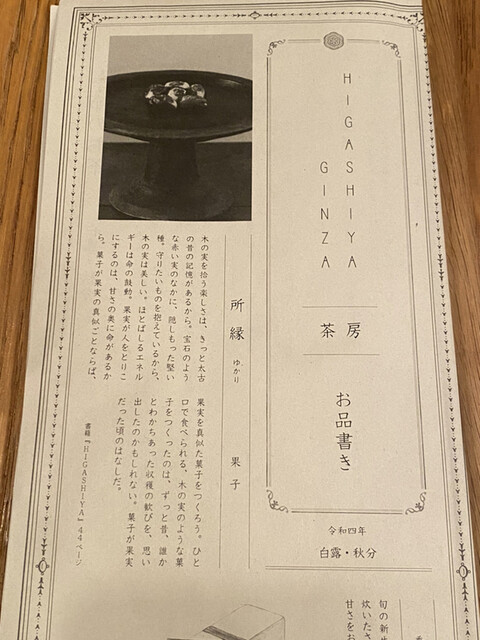 HIGASHIYA
GINZA
茶房
お品書き
令和四年
白露・秋分
所縁 ゆかり 果子
木の実を拾う楽しさは、きっと太古
の昔の記憶があるから。宝石のよう
な赤い実のなかに、隠しもった堅い
種。守りたいものを抱えているから、
木の実は美しい。ほとばしるエネル
ギーは命の鼓動。果実が人をとりこ
にするのは、甘さの奥に命があるか
ら。菓子が果実の真似ごとならば、
果実を真似た菓子をつくろう。ひと
口で食べられる、木の実のような菓
子をつくったのは、ずっと昔、誰か
とわかちあった収穫の歓びを、思い
出したのかもしれない。菓子が果実
だった頃のはなしだ。
書籍『HIGASHIYA』44ページ
旬の新生
炊いたさ
甘さをお